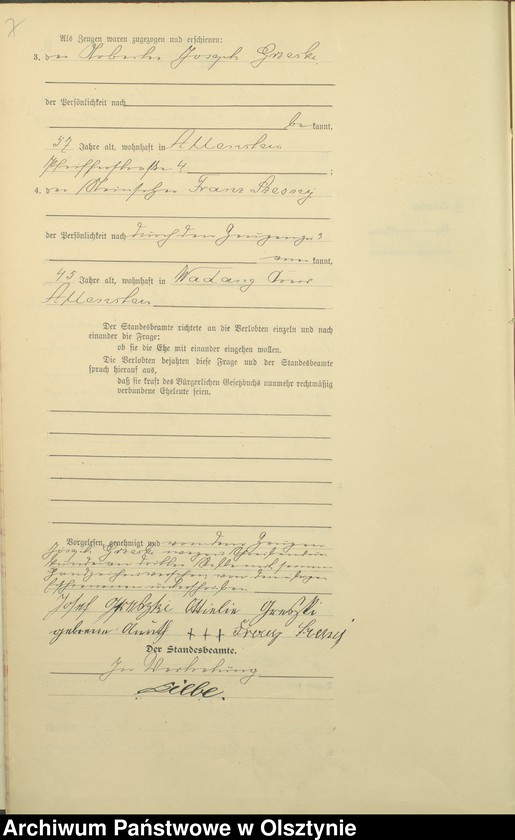 Als Zeugen waren zugezogen und erschienen:
3. der Arbeiter Joseph Grzeski
der Persönlichkeit nach
be kannt,
57 Jahre alt, wohnhaft in Allenstein
Pfeifferstraße 4 ;
4. der Steinsetzer Franz
der Persönlichkeit nach durch den Zeugen zu 3
kannt,
45 Jahre alt, wohnhaft in Wadang Kreis
Allenstein
Der Standesbeamte richtete an die Verlobten einzeln und nach
einander die Frage:
ob sie die Ehe mit einander eingehen wollen.
Die Verlobten bejahten diese Frage und der Standesbeamte
sprach hierauf aus,
daß sie kraft des Bürgerlichen Gesetzbuchs nunmehr rechtmäßig
verbundene Eheleute seien.
Vorgelesen, genehmigt und von dem Zeugen
Joseph Grzeski wegen
von den übrigen
Erschienenen unterschrieben
Josef Ottilie
geborene +++ Franz
Der Standesbeamte.
In Vertretung
Archiwum Państwowe w Olsztynie